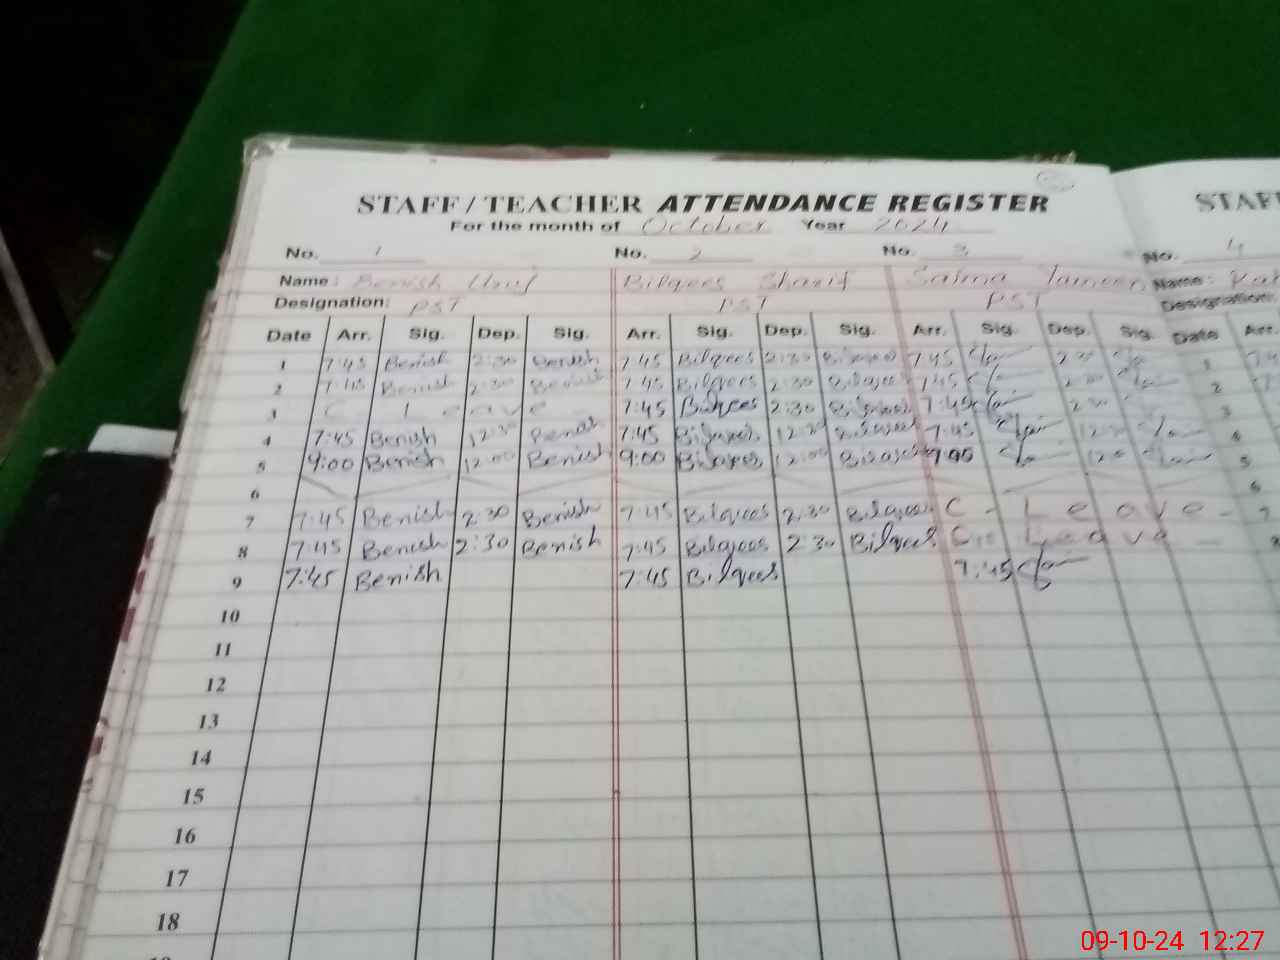 STAFF / TEACHER ATTENDANCE REGISTER STAFF
For the month of October Year 2024
No. 1 No. 2 No. 3 No. 4
Name: Benish Bilqees Sharif Saima Name:
Designation: PST PST PST Designation:
Date Arr. Sig. Dep. Sig. Arr. Sig. Dep. Sig. Arr. Sig. Dep. Sig. Date Arr.
1 7:45 Benish 2:30 Benish 7:45 Bilqees 2:30 Bilqees 7:45 1
2 7:45 Benish 2:30 Benish 7:45 Bilqees 2:30 Bilqees 7:45 2
3 C Leave 7:45 Bilqees 2:30 Bilqees 7:45 3
4 7:45 Benish 12:30 Benish 7:45 Bilqees 12:30 Bilqees 7:45 4
5 9:00 Benish 12:00 Benish 9:00 Bilqees 12:00 Bilqees 5
6 6
7 7:45 Benish 2:30 Benish 7:45 Bilqees 2:30 Bilqees C - Leave - 7
8 7:45 Benish 2:30 Benish 7:45 Bilqees 2:30 Bilqees C - Leave -
9 7:45 Benish 7:45 Bilqees 7:45
10
11
12
13
14
15
16
17
18
09-10-24 12:27